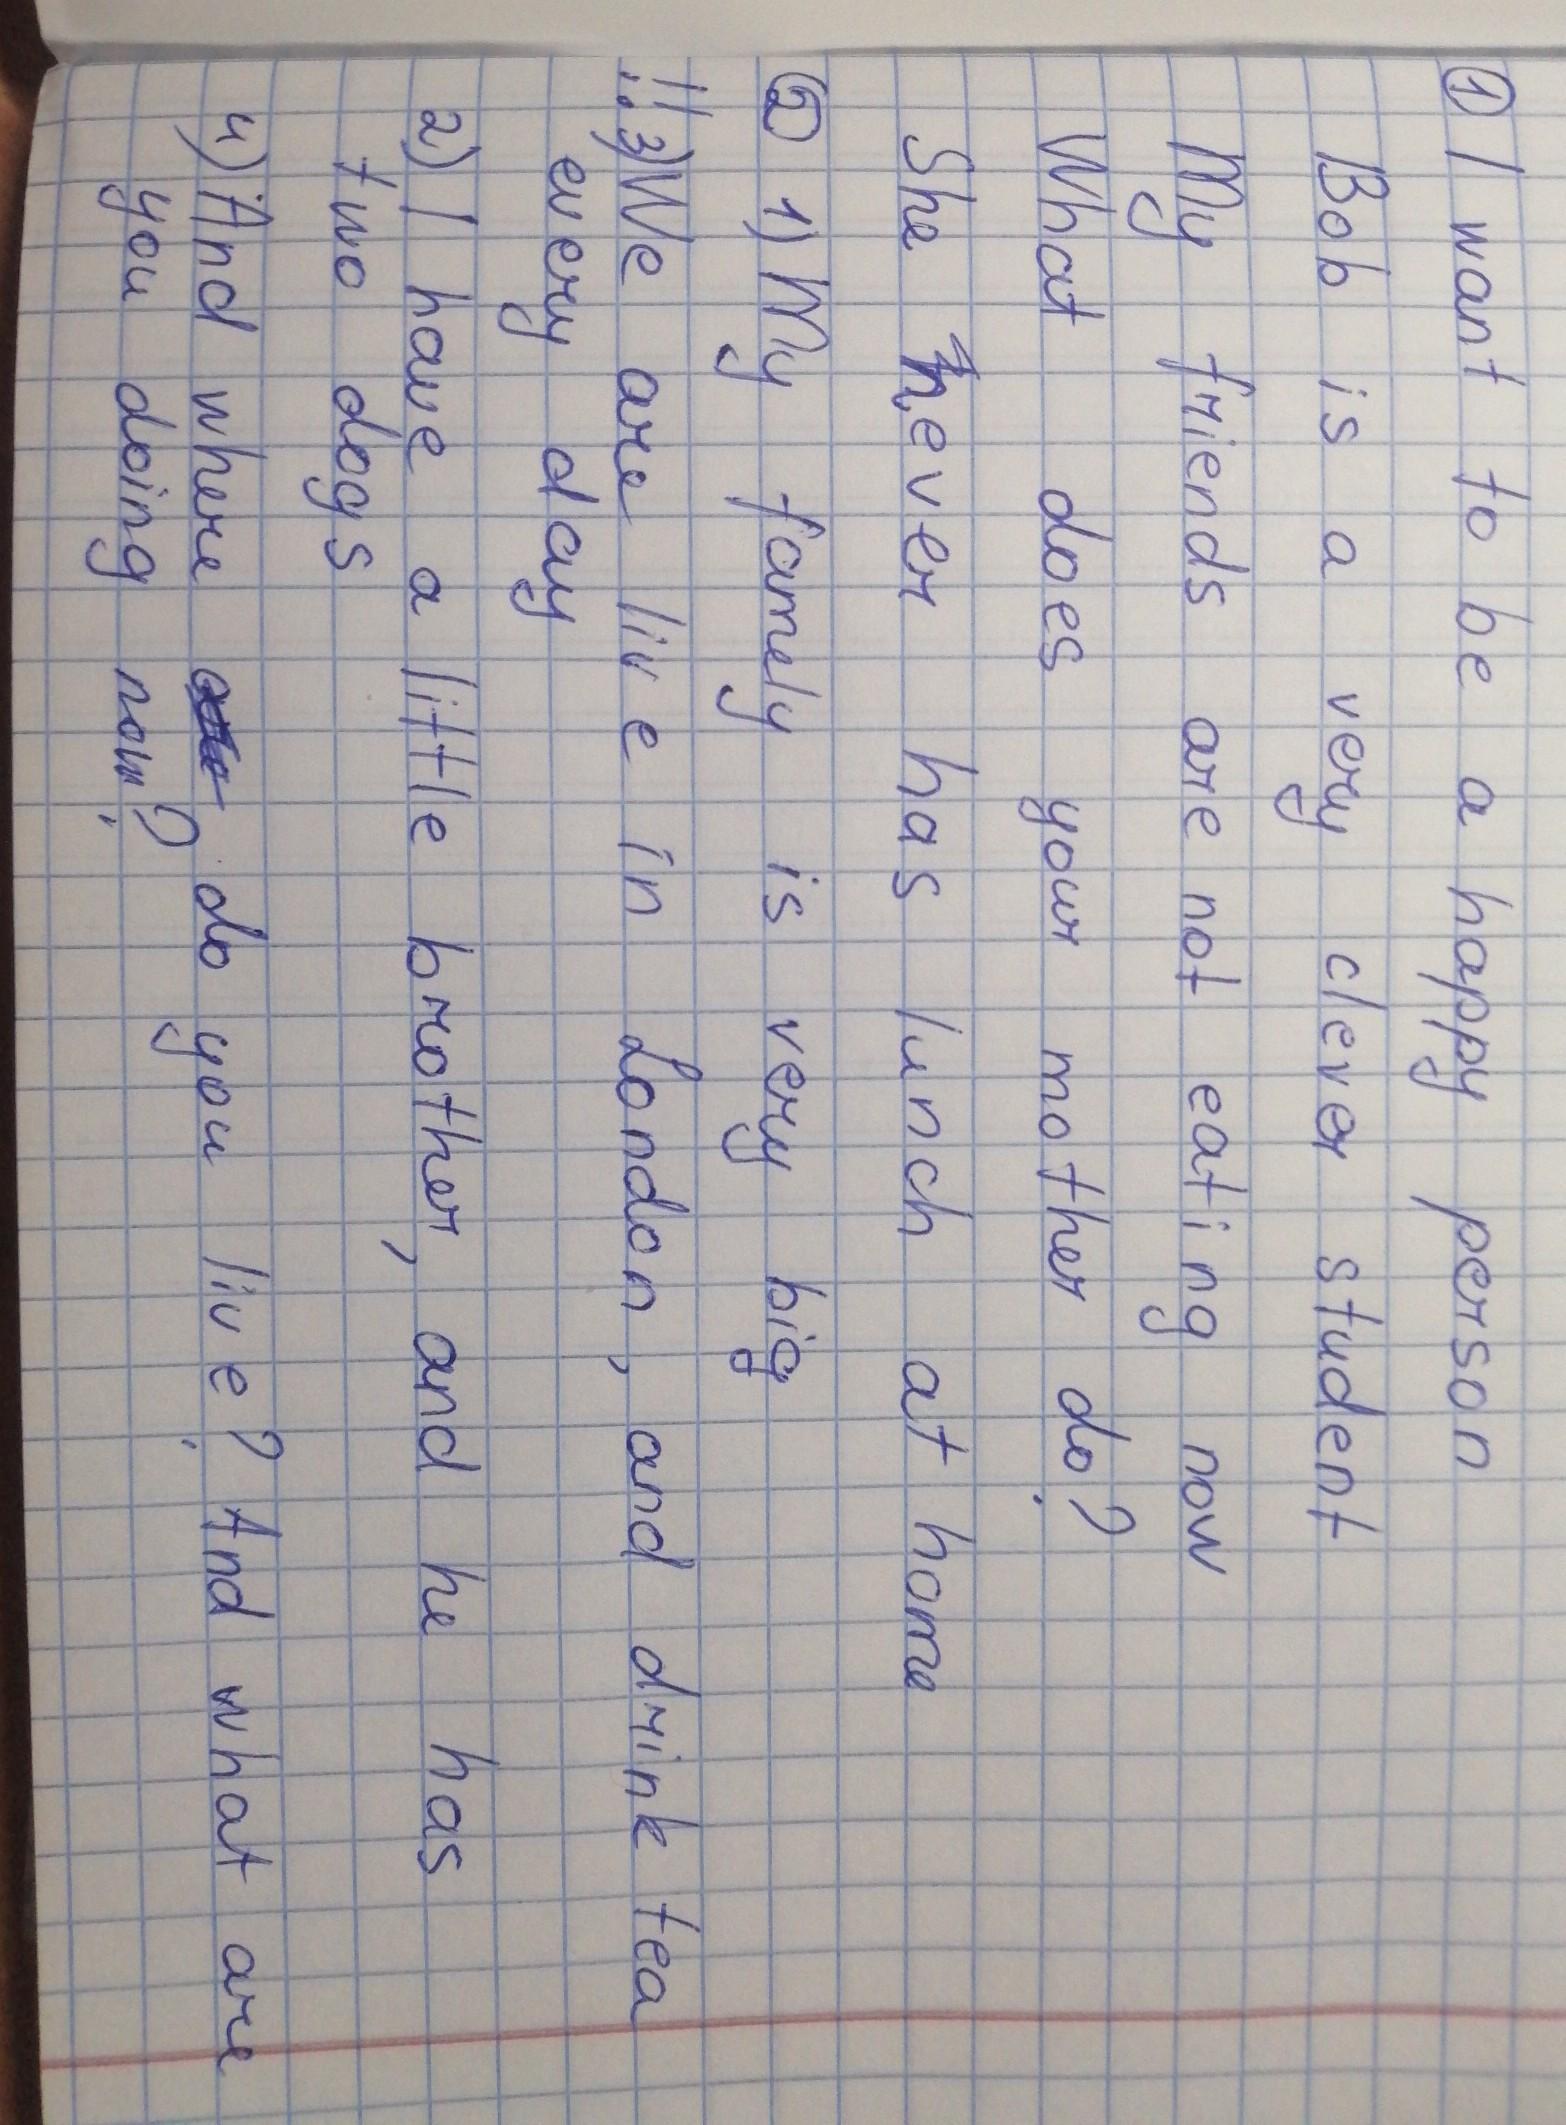 ① I want to be a happy person
Bob is a very clever student
My friends are not eating now
What does your mother do?
She never has lunch at home
② 1) My famely is very big
!!.3) We are live in London, and drink tea
every day
2) I have a little brother, and he has
two dogs
4) And where do you live? And what are
you doing now?